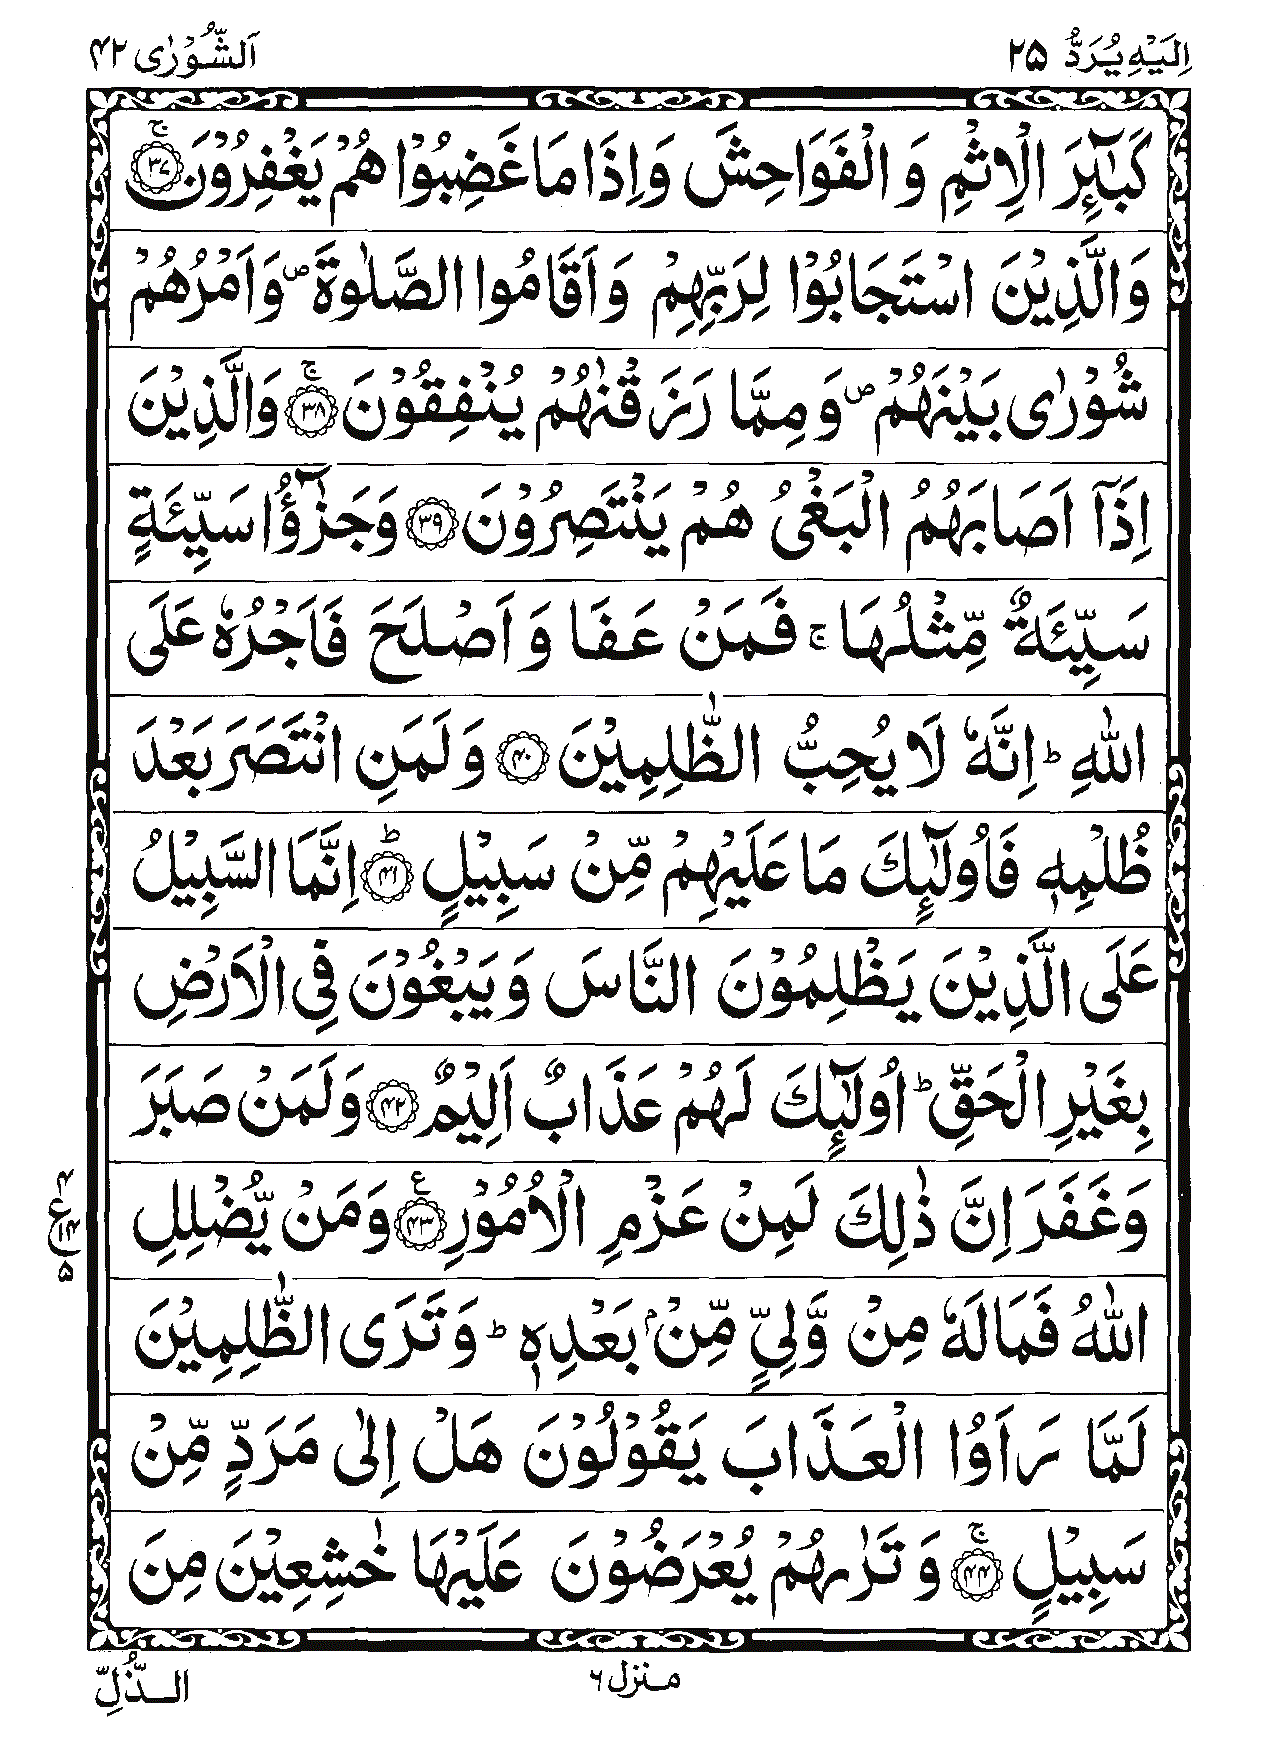 اِلَیْهِ یُرَدُّ ۲۵
اَلشُّوْرٰی ۴۲
كَبٰٓئِرَ الْاِثْمِ وَ الْفَوَاحِشَ وَ اِذَا مَا غَضِبُوْا هُمْ یَغْفِرُوْنَ ۚ﴿۳۷﴾
وَ الَّذِیْنَ اسْتَجَابُوْا لِرَبِّهِمْ وَ اَقَامُوا الصَّلٰوةَ ۪ وَ اَمْرُهُمْ
شُوْرٰی بَیْنَهُمْ ۪ وَ مِمَّا رَزَقْنٰهُمْ یُنْفِقُوْنَ ۚ﴿۳۸﴾ وَ الَّذِیْنَ
اِذَاۤ اَصَابَهُمُ الْبَغْیُ هُمْ یَنْتَصِرُوْنَ ﴿۳۹﴾ وَ جَزٰٓؤُا سَیِّئَةٍ
سَیِّئَةٌ مِّثْلُهَا ۚ فَمَنْ عَفَا وَ اَصْلَحَ فَاَجْرُهٗ عَلَی
اللّٰهِ ؕ اِنَّهٗ لَا یُحِبُّ الظّٰلِمِیْنَ ﴿۴۰﴾ وَ لَمَنِ انْتَصَرَ بَعْدَ
ظُلْمِهٖ فَاُولٰٓئِكَ مَا عَلَیْهِمْ مِّنْ سَبِیْلٍ ؕ﴿۴۱﴾ اِنَّمَا السَّبِیْلُ
عَلَی الَّذِیْنَ یَظْلِمُوْنَ النَّاسَ وَ یَبْغُوْنَ فِی الْاَرْضِ
بِغَیْرِ الْحَقِّ ؕ اُولٰٓئِكَ لَهُمْ عَذَابٌ اَلِیْمٌ ﴿۴۲﴾ وَ لَمَنْ صَبَرَ
وَ غَفَرَ اِنَّ ذٰلِكَ لَمِنْ عَزْمِ الْاُمُوْرِ ﴿۴۳﴾ع وَ مَنْ یُّضْلِلِ
۴ ع ۱۴ ۵
اللّٰهُ فَمَا لَهٗ مِنْ وَّلِیٍّ مِّنْۢ بَعْدِهٖ ؕ وَ تَرَی الظّٰلِمِیْنَ
لَمَّا رَاَوُا الْعَذَابَ یَقُوْلُوْنَ هَلْ اِلٰی مَرَدٍّ مِّنْ
سَبِیْلٍ ۚ﴿۴۴﴾ وَ تَرٰىهُمْ یُعْرَضُوْنَ عَلَیْهَا خٰشِعِیْنَ مِنَ
منزل ۶
الذُّلِّ